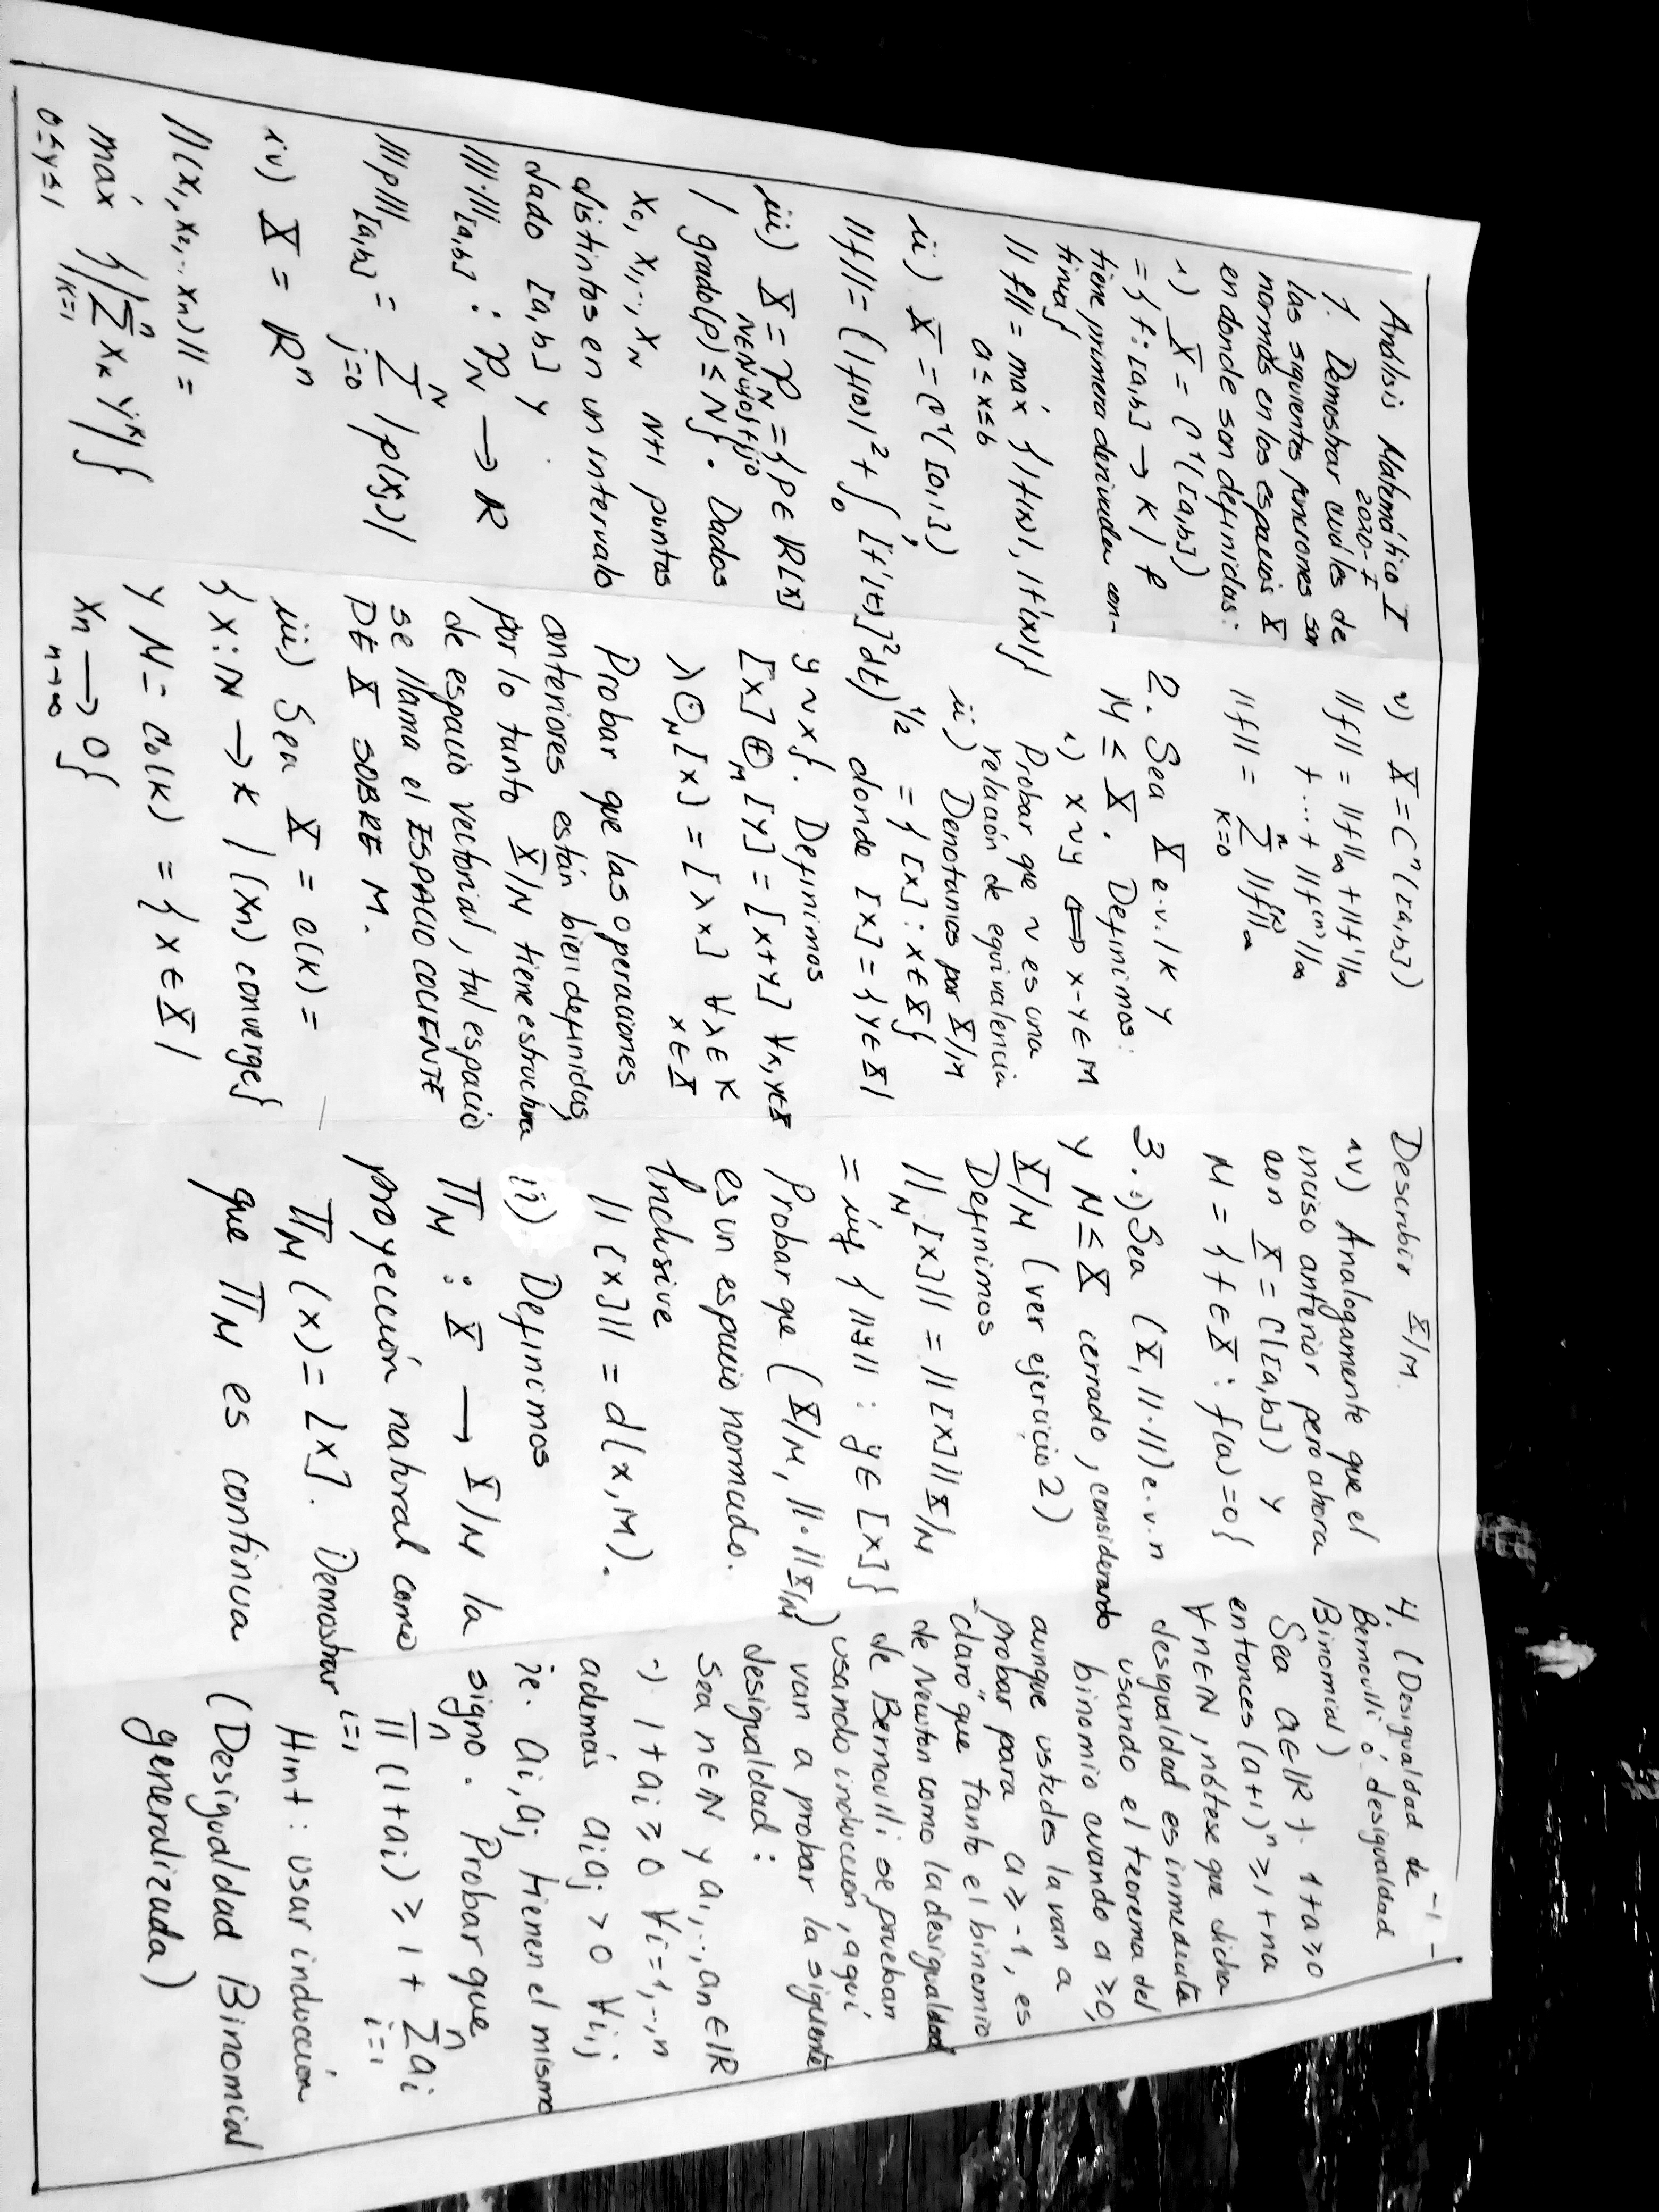 Análisis Matemático I
2020-I
1. Demostrar cuáles de
las siguientes funciones son
normas en los espacios X
en donde son definidas:
i) X = C¹([a,b])
= { f: [a,b] → K | f
tiene primera derivada con-
tinua}
||f|| = máx {|f(x)|, |f'(x)|}
a≤x≤b
ii) X = C¹([0,1])
||f|| = (|f(0)|² + ∫₀¹ [f'(t)]² dt)^1/2
iii) X = P_N = {p ∈ R[x]
N∈N∪{0} fijo
| grado(p) ≤ N}. Dados
x₀, x₁,.., x_N N+1 puntos
distintos en un intervalo
dado [a,b] y
|||·|||[a,b] : P_N → R
|||p|||[a,b] = Σ_{j=0}^{N} |p(xj)|
iv) X = Rⁿ
||(x₁, x₂,.. xn)|| =
máx {|Σ_{k=1}^{n} x_k y^k|}
0≤y≤1
v) X = Cⁿ([a,b])
||f|| = ||f||∞ + ||f'||∞
+ ... + ||f⁽ⁿ⁾||∞
||f|| = Σ_{k=0}^{n} ||f⁽ᵏ⁾||∞
2. Sea X e.v. / K y
M ≤ X. Definimos:
i) x ~ y ⟺ x-y ∈ M
Probar que ~ es una
relación de equivalencia
ii) Denotamos por X/M
= { [x] : x ∈ X}
donde [x] = {y ∈ X |
y ~ x}. Definimos
[x] ⊕_M [y] = [x+y] ∀x,y∈X
λ ⊙_M [x] = [λx] ∀λ∈K
x∈X
Probar que las operaciones
anteriores están bien definidas,
por lo tanto X/M tiene estructura
de espacio vectorial, tal espacio
se llama el ESPACIO COCIENTE
DE X SOBRE M.
iii) Sea X = c(K) =
{x: N → K | (xn) converge}
y M = c₀(K) = {x ∈ X |
xn → 0}
n→∞
Describir X/M.
iv) Analogamente que el
inciso anterior pero ahora
con X = C([a,b]) y
M = {f ∈ X : f(a) = 0}
3. i) Sea (X, ||·||) e.v.n
y M ≤ X cerrado, considerando
X/M (ver ejercicio 2)
Definimos
||[x]||_M = ||[x]||_X/M
= ínf {||y|| : y ∈ [x]}
Probar que (X/M, ||·||_X/M)
es un espacio normado.
Inclusive
||[x]|| = d(x, M).
ii) Definimos
Π_M : X → X/M la
proyección natural como
Π_M (x) = [x]. Demostrar
que Π_M es continua
-1-
4. (Desigualdad de
Bernoulli ó desigualdad
Binomial)
Sea a∈R ∤. 1+a≥0
entonces (a+1)ⁿ ≥ 1+na
∀n∈N, nótese que dicha
desigualdad es inmediata
usando el teorema del
binomio cuando a≥0,
aunque ustedes la van a
probar para a≥-1, es
"claro" que tanto el binomio
de Newton como la desigualdad
de Bernoulli se prueban
usando inducción, aquí
van a probar la siguiente
desigualdad:
Sea n∈N y a₁,.., an∈R
·) 1+ai ≥ 0 ∀i=1,..,n
además aiaj > 0 ∀i,j
ie. ai, aj tienen el mismo
signo. Probar que
Π_{i=1}^{n} (1+ai) ≥ 1 + Σ_{i=1}^{n} ai
Hint: usar inducción
(Desigualdad Binomial
generalizada)